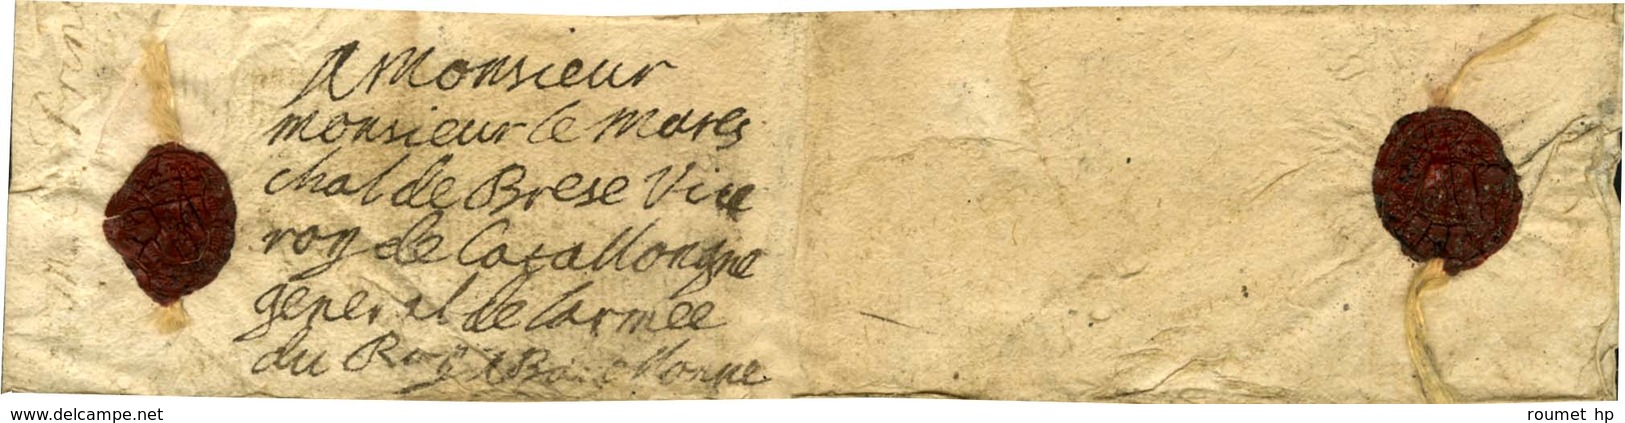 A Monsieur
monsieur le Mares
chal de Brese Vice
roy de Catallongne
general de l'armée
du Roy A Barcellonne
www.delcampe.net
roumet hp